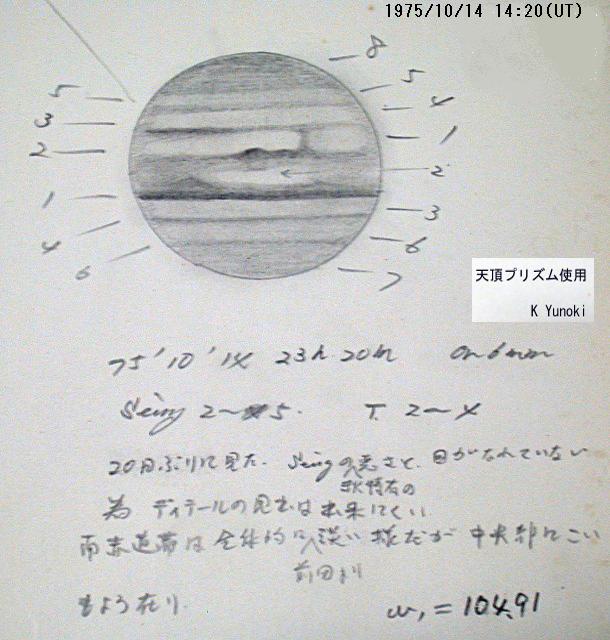 1975/10/14 14:20(UT)
8
5 5
4
3 1
2 2
1 3
4 6
6 7
天頂プリズム使用
K Yunoki
75' 10' 14 23h 20m Or 6mm
Seing 2~5. T. 2~4
20日ぶりに見た. Seingの悪さと、目がなれていない
秋特有の
為 ディテールの見出は出来にくい
南赤道帯は全体的に淡い様だが 中央部にこい
前回より
もよう在り.
ω₁ = 104.91